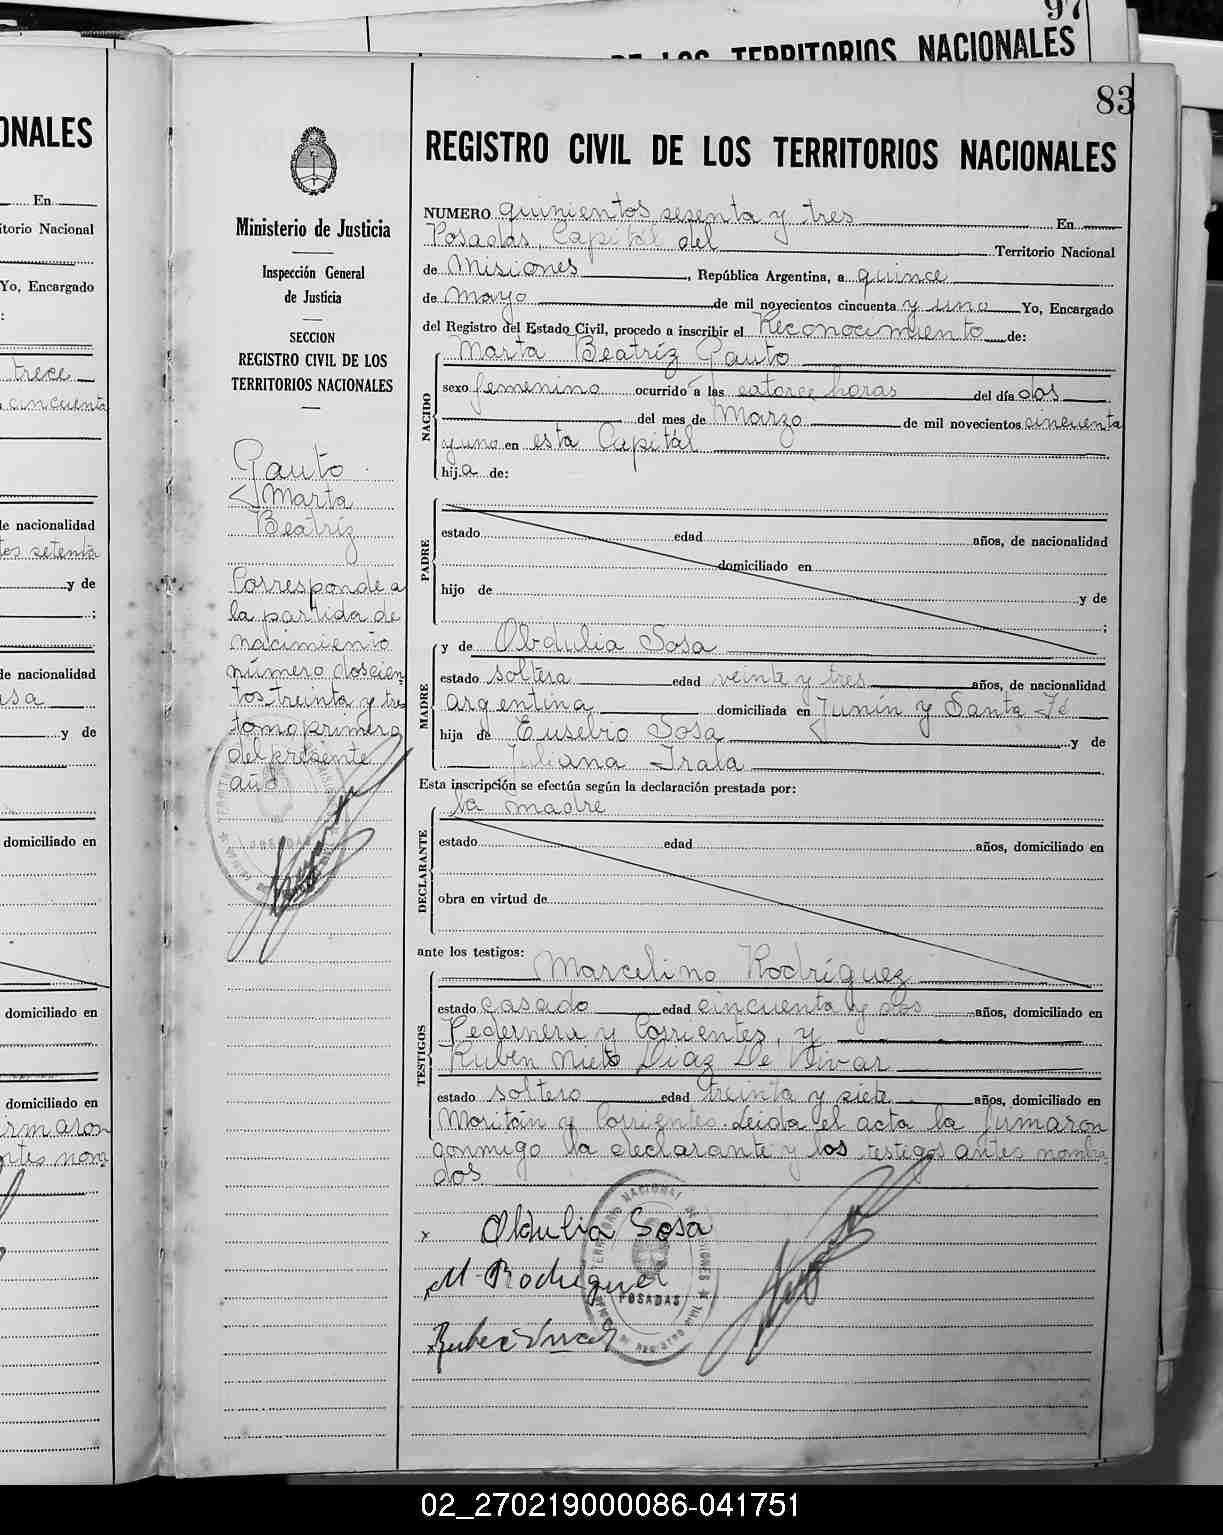 97
DE LOS TERRITORIOS NACIONALES
83
ONALES
En
itorio Nacional
Yo, Encargado
:
trece
cincuenta
de nacionalidad
tos setenta
y de
;
de nacionalidad
y de
domiciliado en
domiciliado en
domiciliado en
Ministerio de Justicia
Inspección General
de Justicia
SECCION
REGISTRO CIVIL DE LOS
TERRITORIOS NACIONALES
Gauto
Marta
Beatríz
Corresponde a
la partida de
nacimiento
número doscien
tos treinta y tres
tomo primero
del presente
año
REGISTRO CIVIL DE LOS TERRITORIOS NACIONALES
NUMERO quinientos sesenta y tres En
Posadas, Capitál del Territorio Nacional
de Misiones, República Argentina, a quince
de mayo de mil novecientos cincuenta y uno Yo, Encargado
del Registro del Estado Civil, procedo a inscribir el Reconocimiento de:
Marta Beatríz Gauto
NACIDO
sexo femenino ocurrido a las catorce horas del día dos
del mes de Marzo de mil novecientos cincuenta
y uno en esta Capitál
hija de:
PADRE
estado edad años, de nacionalidad
domiciliado en
hijo de y de
;
y de Obdulia Sosa
MADRE
estado soltera edad veinte y tres años, de nacionalidad
argentina domiciliada en Junín y Santa Fé
hija de Eusebio Sosa y de
Juliana Irala
Esta inscripción se efectúa según la declaración prestada por:
la madre
DECLARANTE
estado edad años, domiciliado en
obra en virtud de
ante los testigos:
Marcelino Rodríguez
TESTIGOS
estado casado edad cincuenta y dos años, domiciliado en
Pedernera y Corrientes, y
Rubén Nieto Diaz De Vivar
estado soltero edad treinta y siete años, domiciliado en
Moritán y Corrientes. Leida el acta la firmaron
conmigo la declarante y los testigos antes nombra
dos
x Obdulia Sosa
M. Rodriguez
POSADAS
02_270219000086-041751